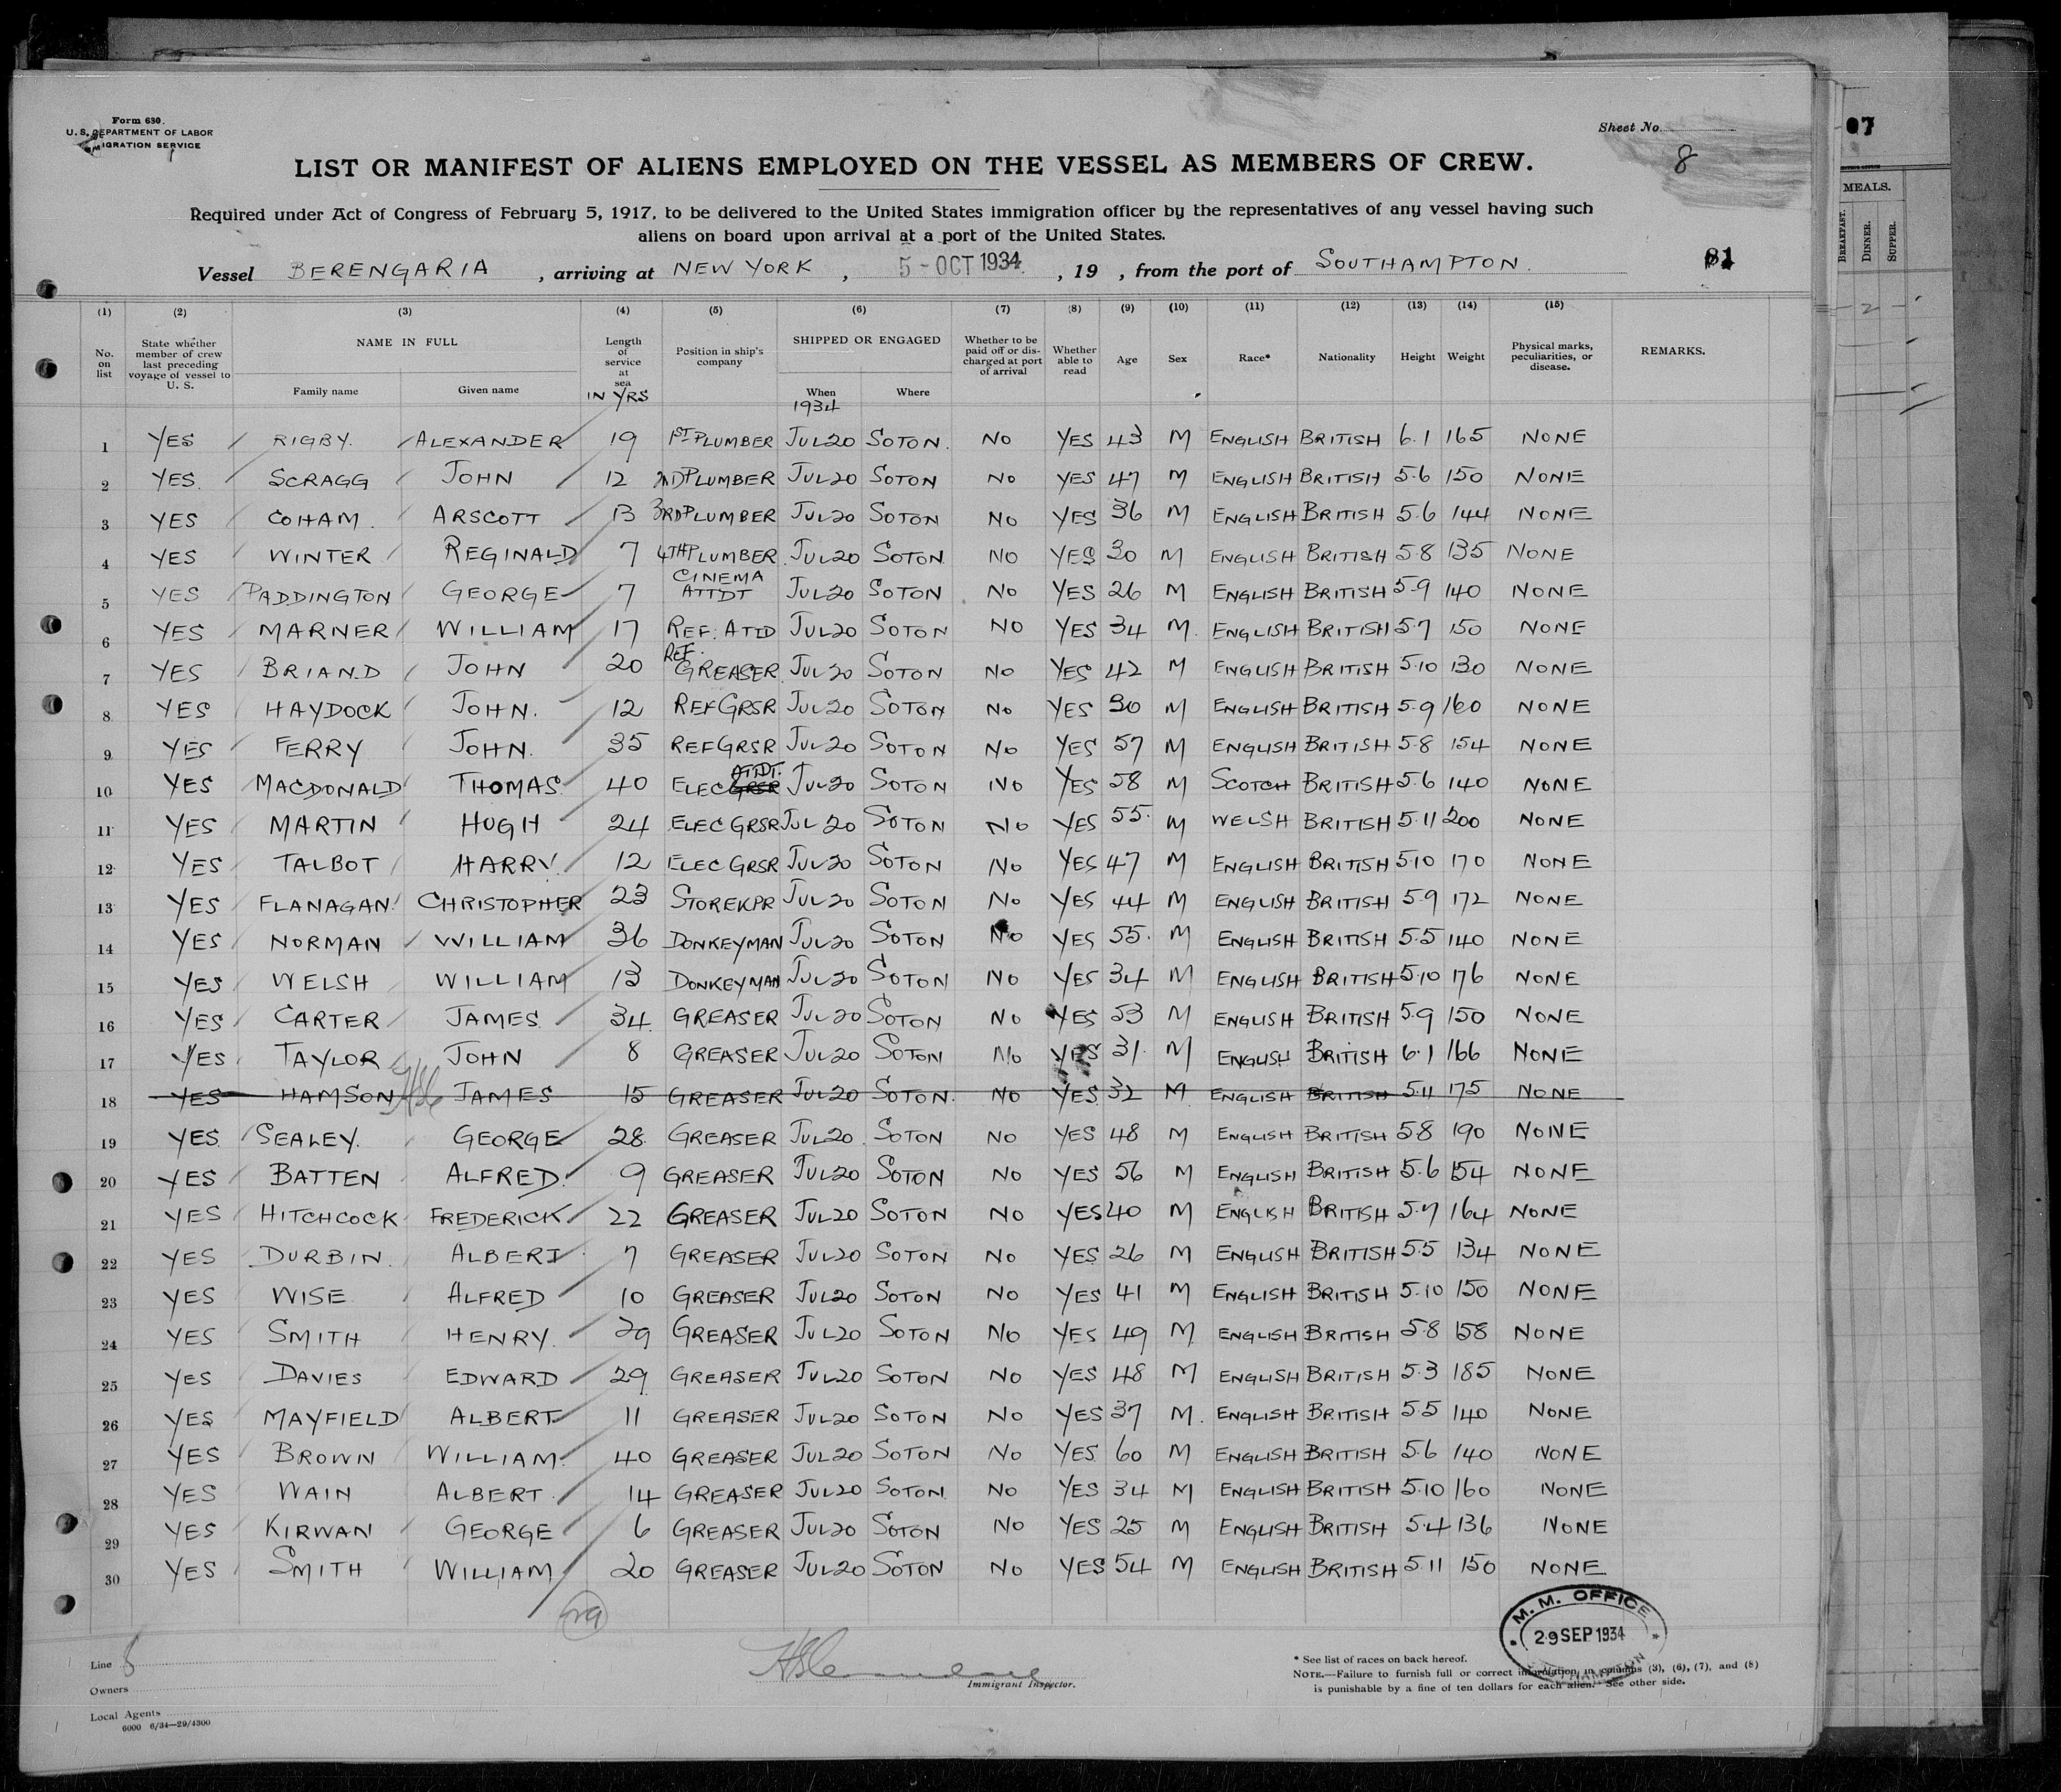 Form 630.
U. S. DEPARTMENT OF LABOR
IGRATION SERVICE
Sheet No.
8
07
LIST OR MANIFEST OF ALIENS EMPLOYED ON THE VESSEL AS MEMBERS OF CREW.
Required under Act of Congress of February 5, 1917, to be delivered to the United States immigration officer by the representatives of any vessel having such
aliens on board upon arrival at a port of the United States.
81
Vessel BERENGARIA , arriving at NEW YORK , 5 - OCT 1934 , 19 , from the port of SOUTHAMPTON.
MEALS.
BREAKFAST. DINNER. SUPPER.
2
(1) (2) (3) (4) (5) (6) (7) (8) (9) (10) (11) (12) (13) (14) (15)
No. on list State whether member of crew last preceding voyage of vessel to U. S. NAME IN FULL Family name Given name Length of service at sea IN YRS Position in ship's company SHIPPED OR ENGAGED When 1934 Where Whether to be paid off or discharged at port of arrival Whether able to read Age Sex Race* Nationality Height Weight Physical marks, peculiarities, or disease. REMARKS.
1 YES RIGBY. ALEXANDER 19 1ST PLUMBER JUL 20 SOTON. NO YES 43 M ENGLISH BRITISH 6.1 165 NONE
2 YES. SCRAGG JOHN 12 2ND PLUMBER JUL 20 SOTON NO YES 47 M ENGLISH BRITISH 5.6 150 NONE
3 YES COHAM. ARSCOTT 13 3RD PLUMBER JUL 20 SOTON NO YES 36 M ENGLISH BRITISH 5.6 144 NONE
4 YES WINTER REGINALD 7 4TH PLUMBER JUL 20 SOTON NO YES 30 M ENGLISH BRITISH 5.8 135 NONE
5 YES PADDINGTON GEORGE 7 CINEMA ATTDT JUL 20 SOTON NO YES 26 M ENGLISH BRITISH 5.9 140 NONE
6 YES MARNER WILLIAM 17 REF: ATTD JUL 20 SOTON NO YES 34 M. ENGLISH BRITISH 5.7 150 NONE
7 YES BRIAND JOHN 20 REF. GREASER JUL 20 SOTON NO YES 42 M ENGLISH BRITISH 5.10 130 NONE
8 YES HAYDOCK JOHN. 12 REF GRSR JUL 20 SOTON NO YES 30 M ENGLISH BRITISH 5.9 160 NONE
9 YES FERRY JOHN. 35 REF GRSR JUL 20 SOTON NO YES 57 M ENGLISH BRITISH 5.8 154 NONE
10 YES MACDONALD THOMAS. 40 ELEC GRSR ATTDT. JUL 20 SOTON NO YES 58 M SCOTCH BRITISH 5.6 140 NONE
11 YES MARTIN HUGH 24 ELEC GRSR JUL 20 SOTON NO YES 55. M WELSH BRITISH 5.11 200 NONE
12 YES TALBOT HARRY. 12 ELEC GRSR JUL 20 SOTON NO YES 47 M ENGLISH BRITISH 5.10 170 NONE
13 YES FLANAGAN CHRISTOPHER 23 STOREKPR JUL 20 SOTON NO YES 44 M ENGLISH BRITISH 5.9 172 NONE
14 YES NORMAN WILLIAM 36 DONKEYMAN JUL 20 SOTON NO YES 55. M ENGLISH BRITISH 5.5 140 NONE
15 YES WELSH WILLIAM 13 DONKEYMAN JUL 20 SOTON NO YES 34 M ENGLISH BRITISH 5.10 176 NONE
16 YES CARTER JAMES. 34. GREASER JUL 20 SOTON NO YES 53 M ENGLISH BRITISH 5.9 150 NONE
17 YES TAYLOR JOHN 8 GREASER JUL 20 SOTON NO YES 31. M ENGLISH BRITISH 6.1 166 NONE
18 YES HAMSON JAMES 15 GREASER JUL 20 SOTON. NO YES. 32 M ENGLISH BRITISH 5.11 175 NONE
19 YES. SEALEY. GEORGE 28. GREASER JUL 20. SOTON NO YES 48 M ENGLISH BRITISH 5.8 190 NONE
20 YES BATTEN ALFRED. 9 GREASER JUL 20 SOTON NO YES 56 M ENGLISH BRITISH 5.6 154 NONE
21 YES HITCHCOCK FREDERICK 22 GREASER JUL 20 SOTON NO YES 40 M ENGLISH BRITISH 5.7 164 NONE
22 YES DURBIN. ALBERT 7 GREASER JUL 20 SOTON NO YES 26 M ENGLISH BRITISH 5.5 134 NONE
23 YES WISE ALFRED 10 GREASER JUL 20 SOTON NO YES 41 M ENGLISH BRITISH 5.10 150 NONE
24 YES SMITH HENRY. 29 GREASER JUL 20 SOTON NO YES 49 M ENGLISH BRITISH 5.8 158 NONE
25 YES DAVIES EDWARD 29 GREASER JUL 20 SOTON NO YES 48 M ENGLISH BRITISH 5.3 185 NONE
26 YES MAYFIELD ALBERT 11 GREASER JUL 20 SOTON NO YES 37 M. ENGLISH BRITISH 5.5 140 NONE
27 YES BROWN WILLIAM. 40 GREASER JUL 20 SOTON NO YES. 60 M ENGLISH BRITISH 5.6 140 NONE
28 YES WAIN ALBERT. 14 GREASER JUL 20 SOTON NO YES 34 M ENGLISH BRITISH 5.10 160 NONE
29 YES KIRWAN GEORGE 6 GREASER JUL 20 SOTON NO YES 25 M ENGLISH BRITISH 5.4 136 NONE
30 YES SMITH WILLIAM 20 GREASER JUL 20 SOTON NO YES 54 M ENGLISH BRITISH 5.11 150 NONE
29
M. M. OFFICE
29 SEP 1934
SOUTHAMPTON
Line
Owners
Local Agents
6000 6/34—29/4300
Immigrant Inspector.
* See list of races on back hereof.
NOTE.—Failure to furnish full or correct information in columns (3), (6), (7), and (8)
is punishable by a fine of ten dollars for each alien. See other side.